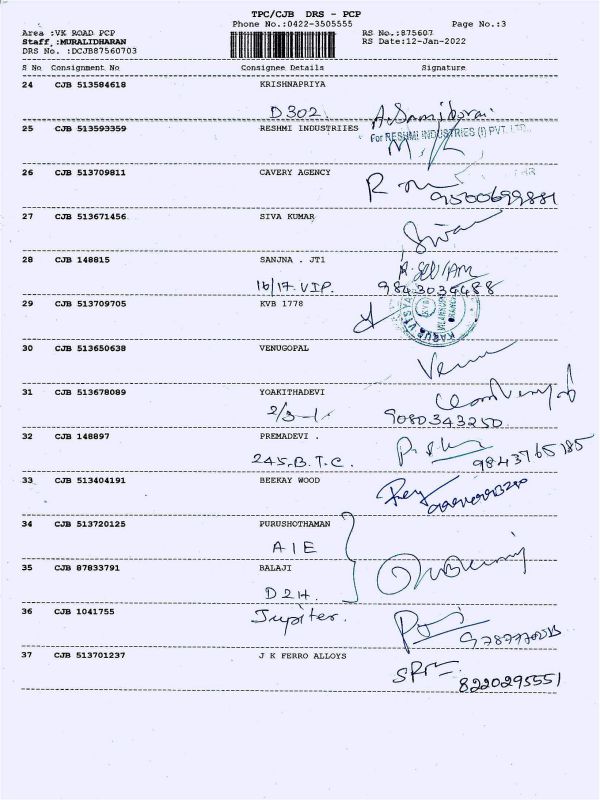 TPC/CJB DRS - PCP
Phone No.:0422-3505555 Page No.:3
Area :VK ROAD PCP RS No.:875607
Staff :MURALIDHARAN RS Date:12-Jan-2022
DRS No. :DCJB87560703
S No Consignment No Consignee Details Signature
24 CJB 513584618 KRISHNAPRIYA
D302
25 CJB 513593359 RESHMI INDUSTRIIES
For RESHMI INDUSTRIES (I) PVT. LTD.,
26 CJB 513709811 CAVERY AGENCY
27 CJB 513671456 SIVA KUMAR
Siva
28 CJB 148815 SANJNA . JT1
16/17. V.I.P.
29 CJB 513709705 KVB 1778
30 CJB 513650638 VENUGOPAL
31 CJB 513678089 YOAKITHADEVI
9080343250
32 CJB 148897 PREMADEVI .
245. B.T.C. 9843765185
33 CJB 513404191 BEEKAY WOOD
34 CJB 513720125 PURUSHOTHAMAN
A1E
35 CJB 87833791 BALAJI
D2H.
36 CJB 1041755 Jupiter.
37 CJB 513701237 J K FERRO ALLOYS
8220295551